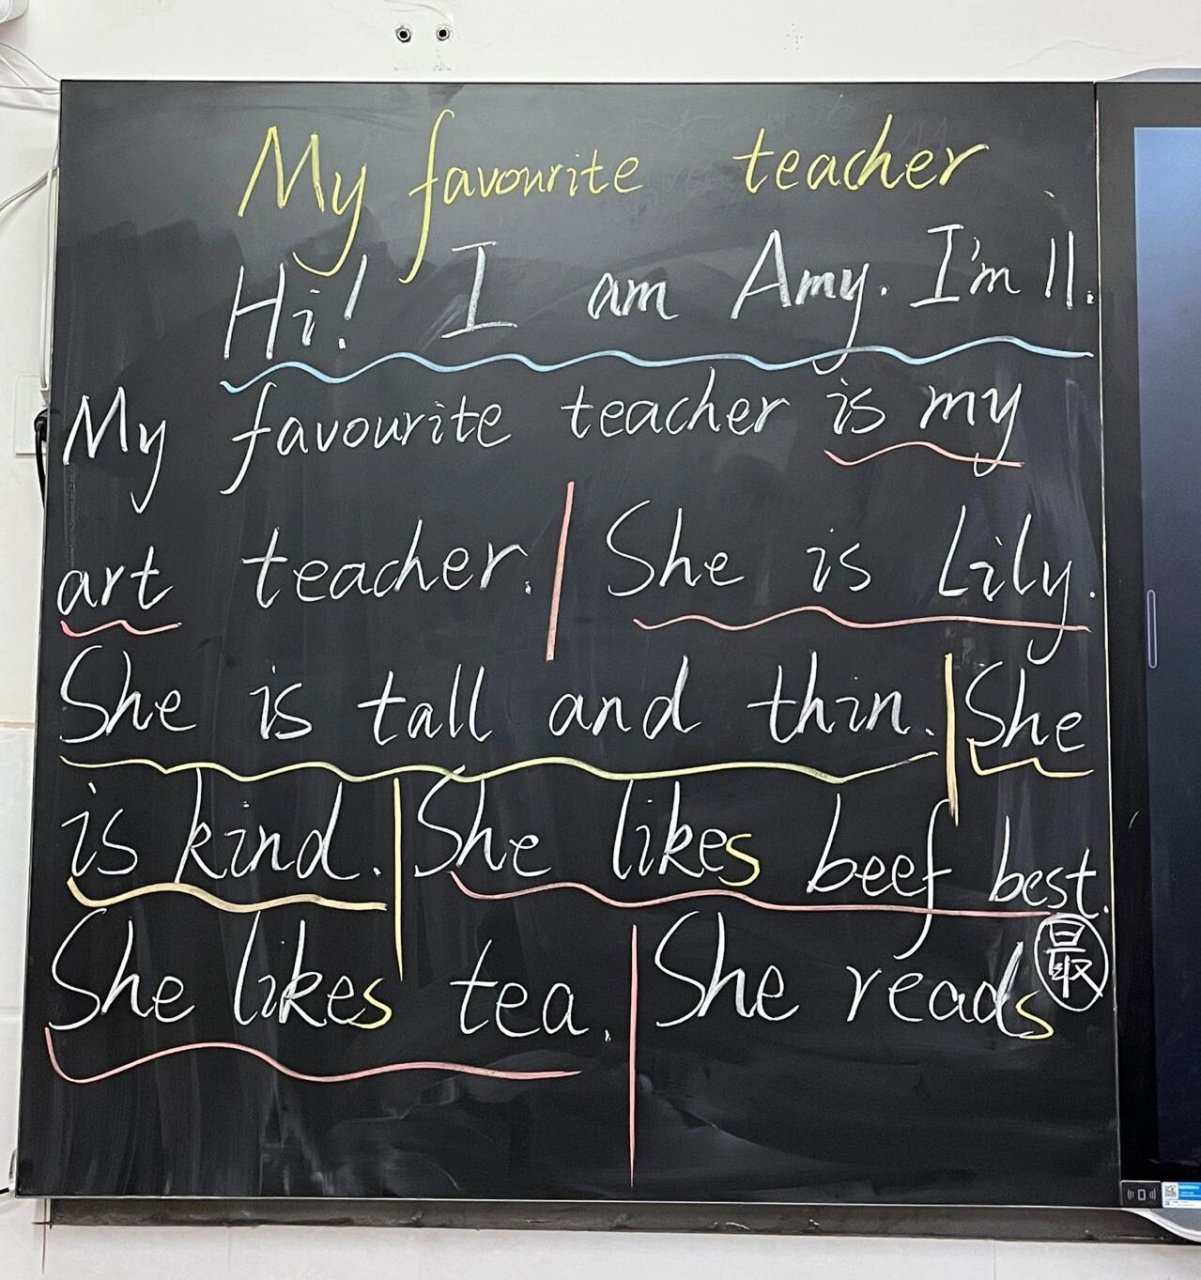 My favourite teacher
Hi! I am Amy. I'm 11.
My favourite teacher is my
art teacher. She is Lily.
She is tall and thin. She
is kind. She likes beef best.
最
She likes tea. She reads